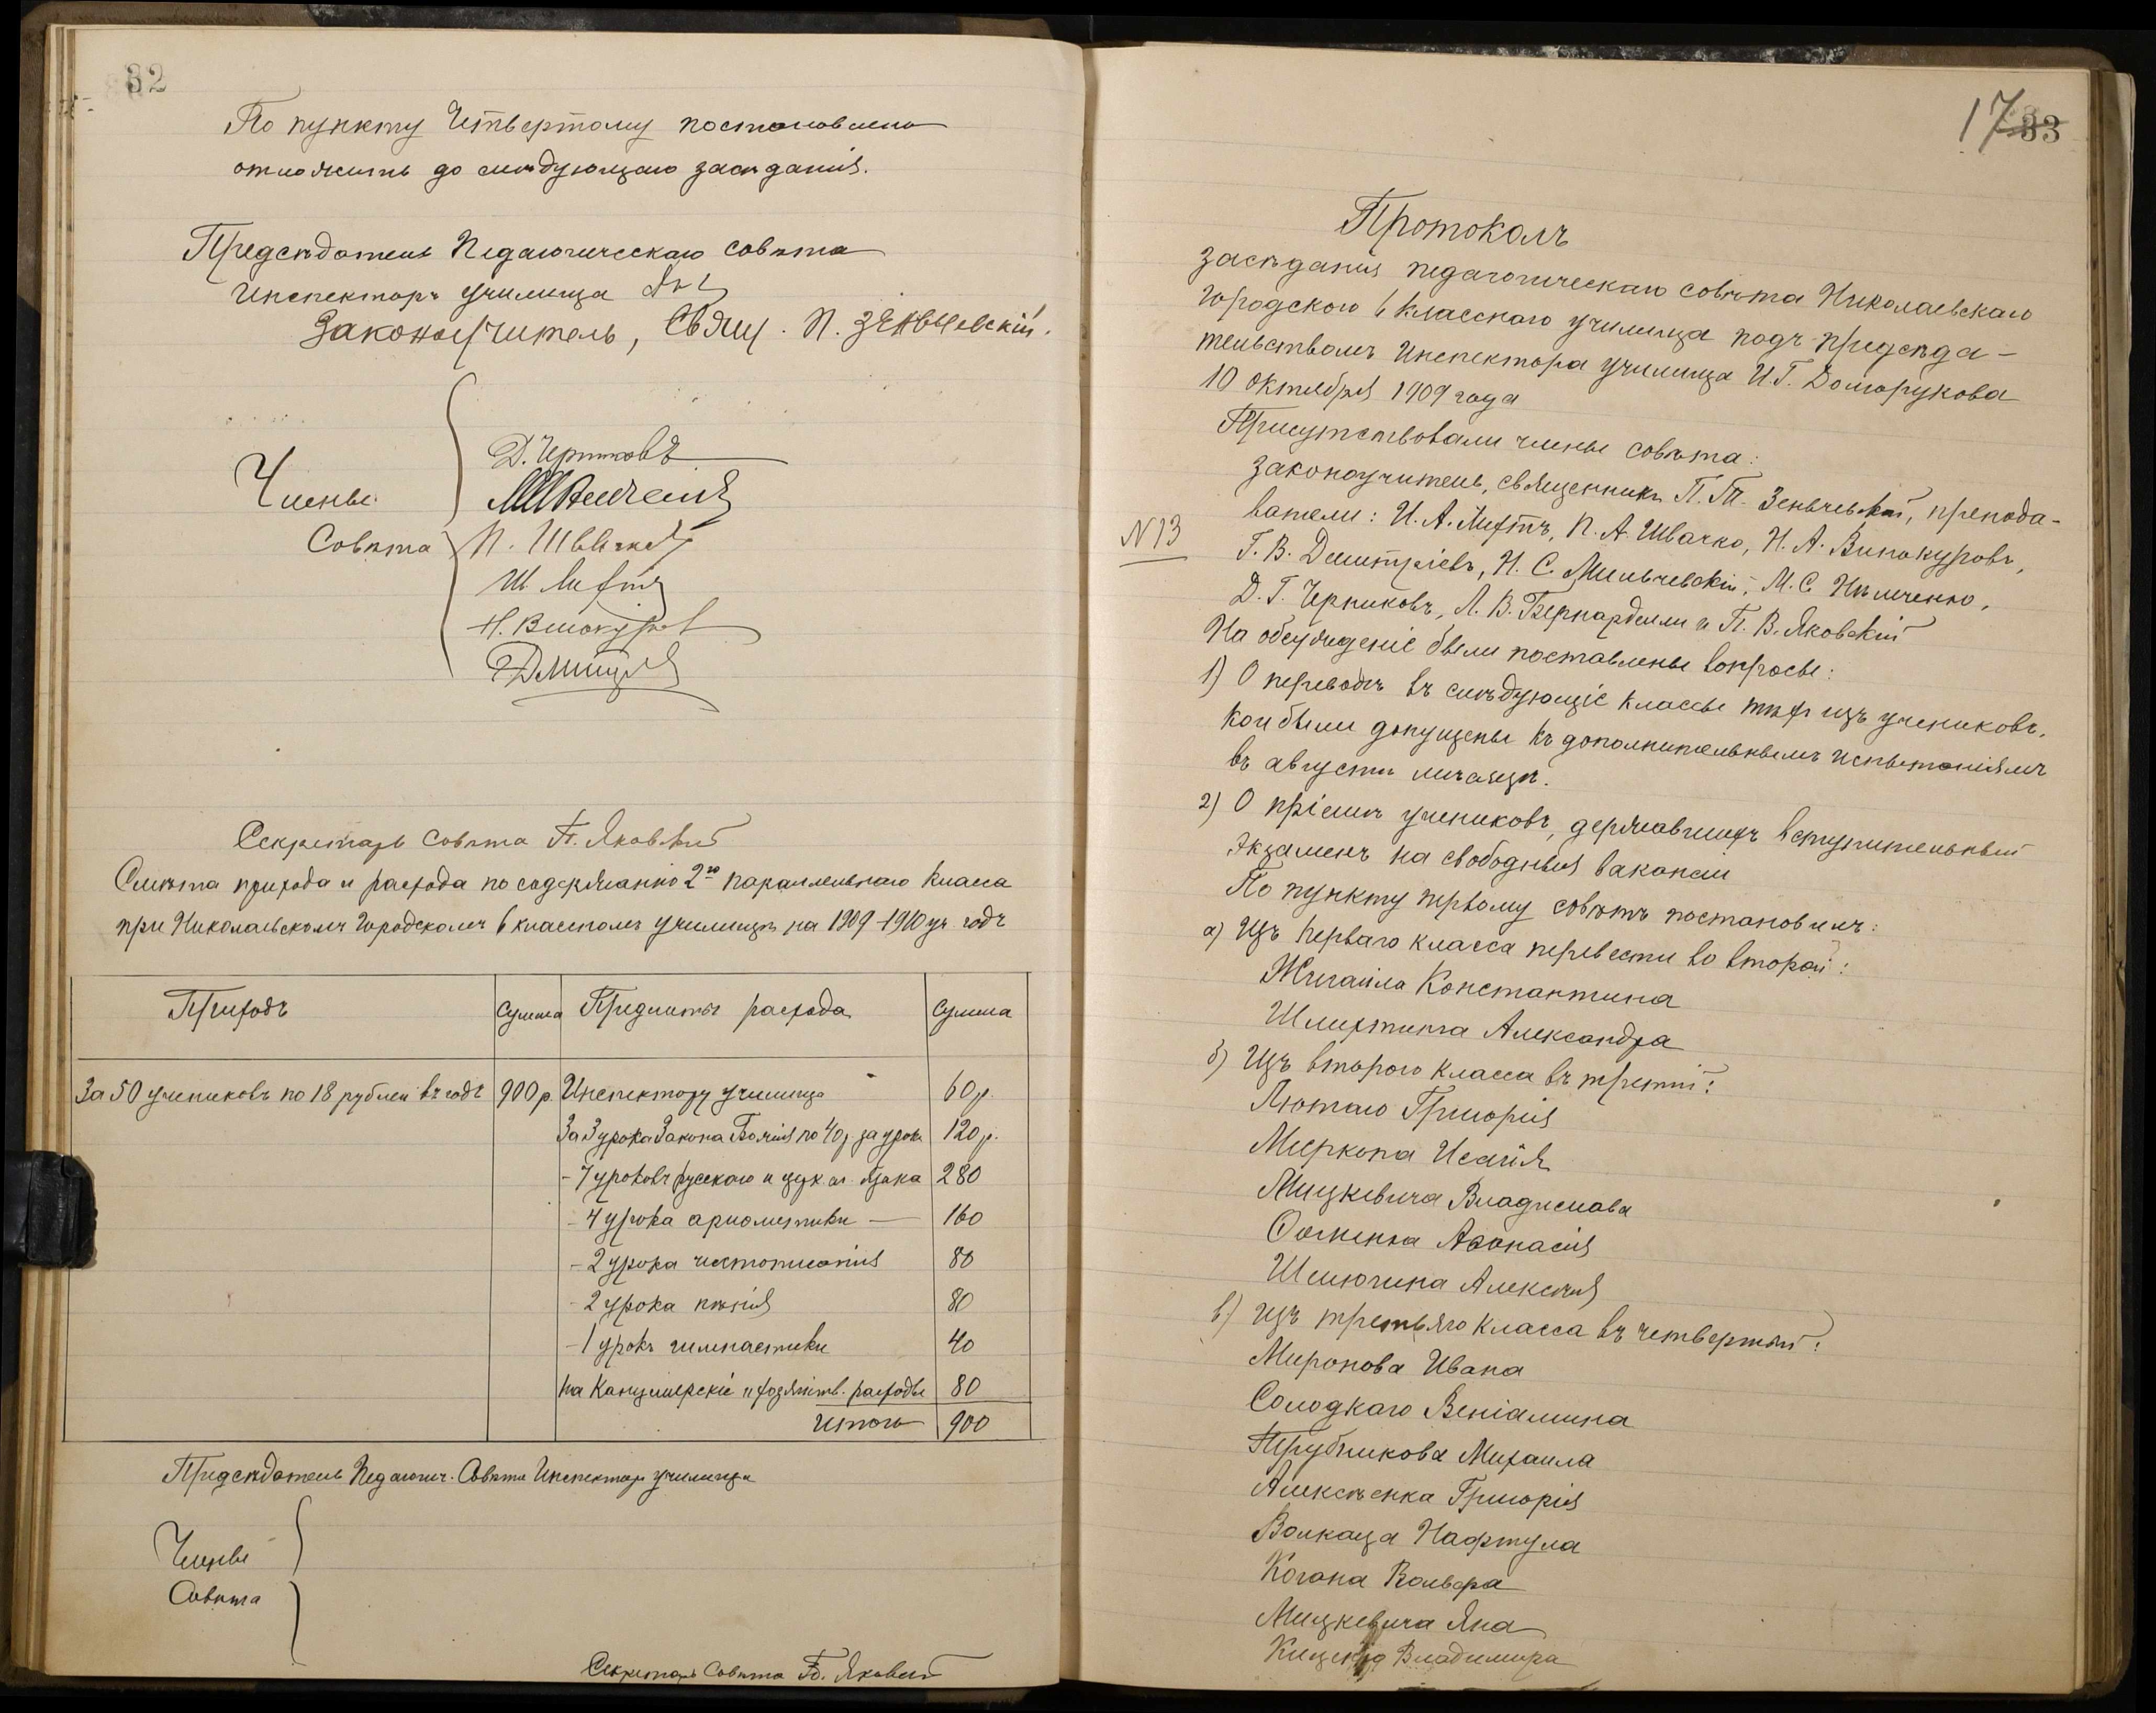 32
По пункту Четвертому постановлено
отложить до слѣдующаго засѣданія.
Предсѣдатель Педагогическаго совѣта
Инспекторъ училища
Законоучитель, Свящ. П. Зеньчевскій.
Члены
Совѣта
Д. Черниковъ
М. Ильченко
П. Швачко
И. Лифтъ
Н. Винокуровъ
Дмитріевъ
Секретарь совѣта П. Яковскій
Смѣта прихода и расхода по содержанію 2го параллельнаго класса
при Николаевскомъ Городскомъ 6 классномъ училищѣ на 1909-1910 уч. годъ
Приходъ Сумма Предметы расхода Сумма
За 50 учениковъ по 18 рублей въ годъ 900 р. Инспектору училища 60 р.
За 3 урока Закона Божія по 40 р. за урокъ 120 р.
- 7 уроковъ русскаго и цук. сл. языка 280
- 4 урока ариѳметики — 160
- 2 урока чистописанія 80
- 2 урока пѣнія 80
- 1 урокъ гимнастики 40
на Канцелярскіе и хозяйств. расходы 80
Итого 900
Предсѣдатель Педагогич. Совѣта Инспекторъ училища
Члены
Совѣта
Секретарь Совѣта П. Яковскій
17 33
Протоколъ
засѣданія педагогическаго совѣта Николаевскаго
Городского 6 класснаго училища подъ предсѣда-
тельствомъ Инспектора училища И. Г. Долгорукова
10 октября 1909 года
Присутствовали члены совѣта:
законоучитель, священникъ П. Т. Зеньчевскій, препода-
№ 13
ватели: И. А. Лифтъ, П. А. Швачко, Н. А. Винокуровъ,
Г. В. Дмитріевъ, Н. С. Мильчевскій, М. С. Ильченко,
Д. Г. Черниковъ, Л. В. Бернарделли и П. В. Яковскій
На обсужденіе были поставлены вопросы:
1) О переводѣ въ слѣдующіе классы тѣхъ изъ учениковъ,
кои были допущены къ дополнительнымъ испытаніямъ
въ августѣ мѣсяцѣ.
2) О пріемѣ учениковъ, державшихъ вступительный
экзаменъ на свободныя вакансіи
По пункту первому совѣтъ постановилъ:
а) Изъ перваго класса перевести во второй:
Жигаила Константина
Шлихтинга Александра
б) Изъ второго класса въ третій:
Лютаго Григорія
Миркопа Исаія
Мицкевича Владислава
Ѳоменка Аѳанасія
Шелюгина Алексѣя
в) изъ третьяго класса въ четвертый:
Миронова Ивана
Солодкаго Веніамина
Трубникова Михаила
Алексѣенка Григорія
Волкаца Нафтула
Когана Вольфа
Мицкевича Яна
Владимира